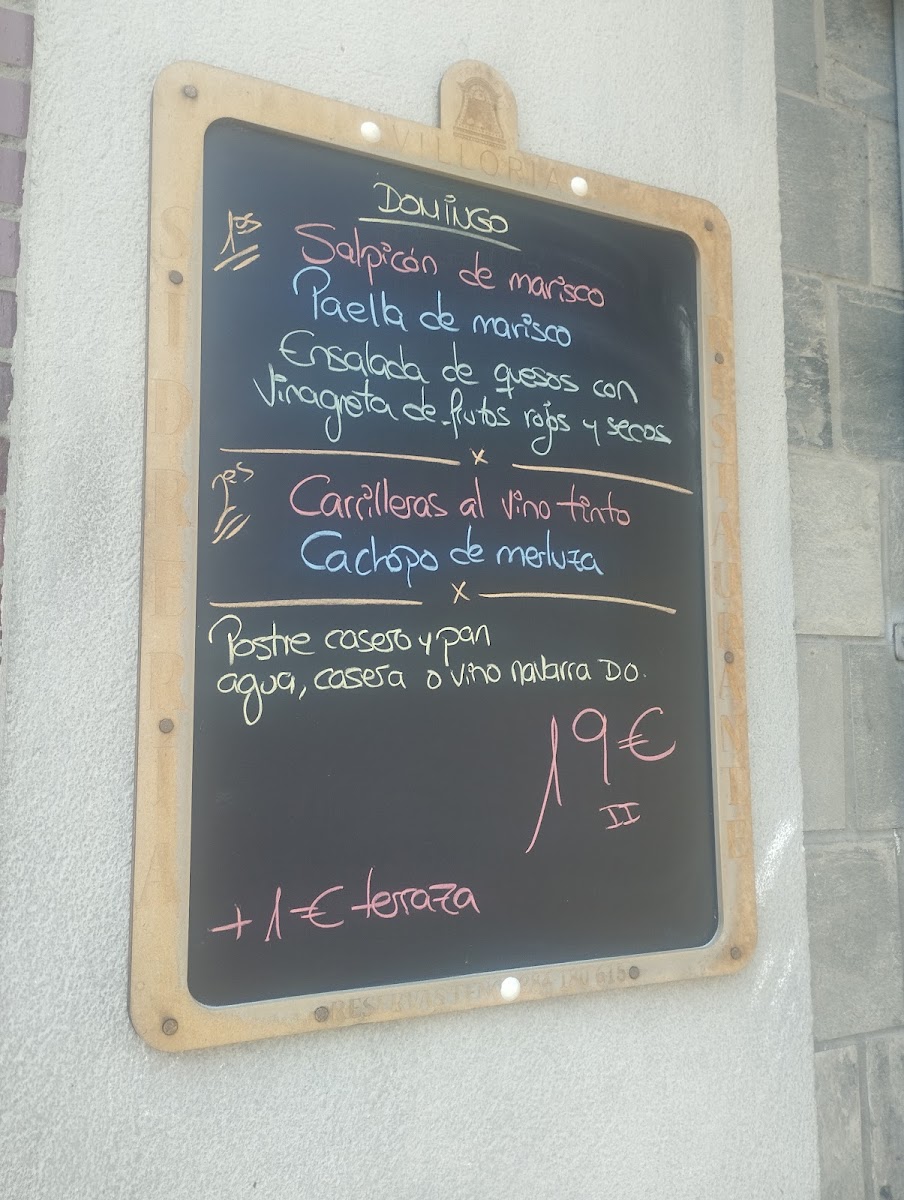 VILLORIA
SIDRERIA
RESTAURANTE
DOMINGO
1os
Salpicón de marisco
Paella de marisco
Ensalada de quesos con
vinagreta de frutos rojos y secos
x
Carrilleras al vino tinto
Cachopo de merluza
x
Postre casero y pan
agua, casera o vino navarra DO.
19€
II
+1€ terraza
RESERVAS